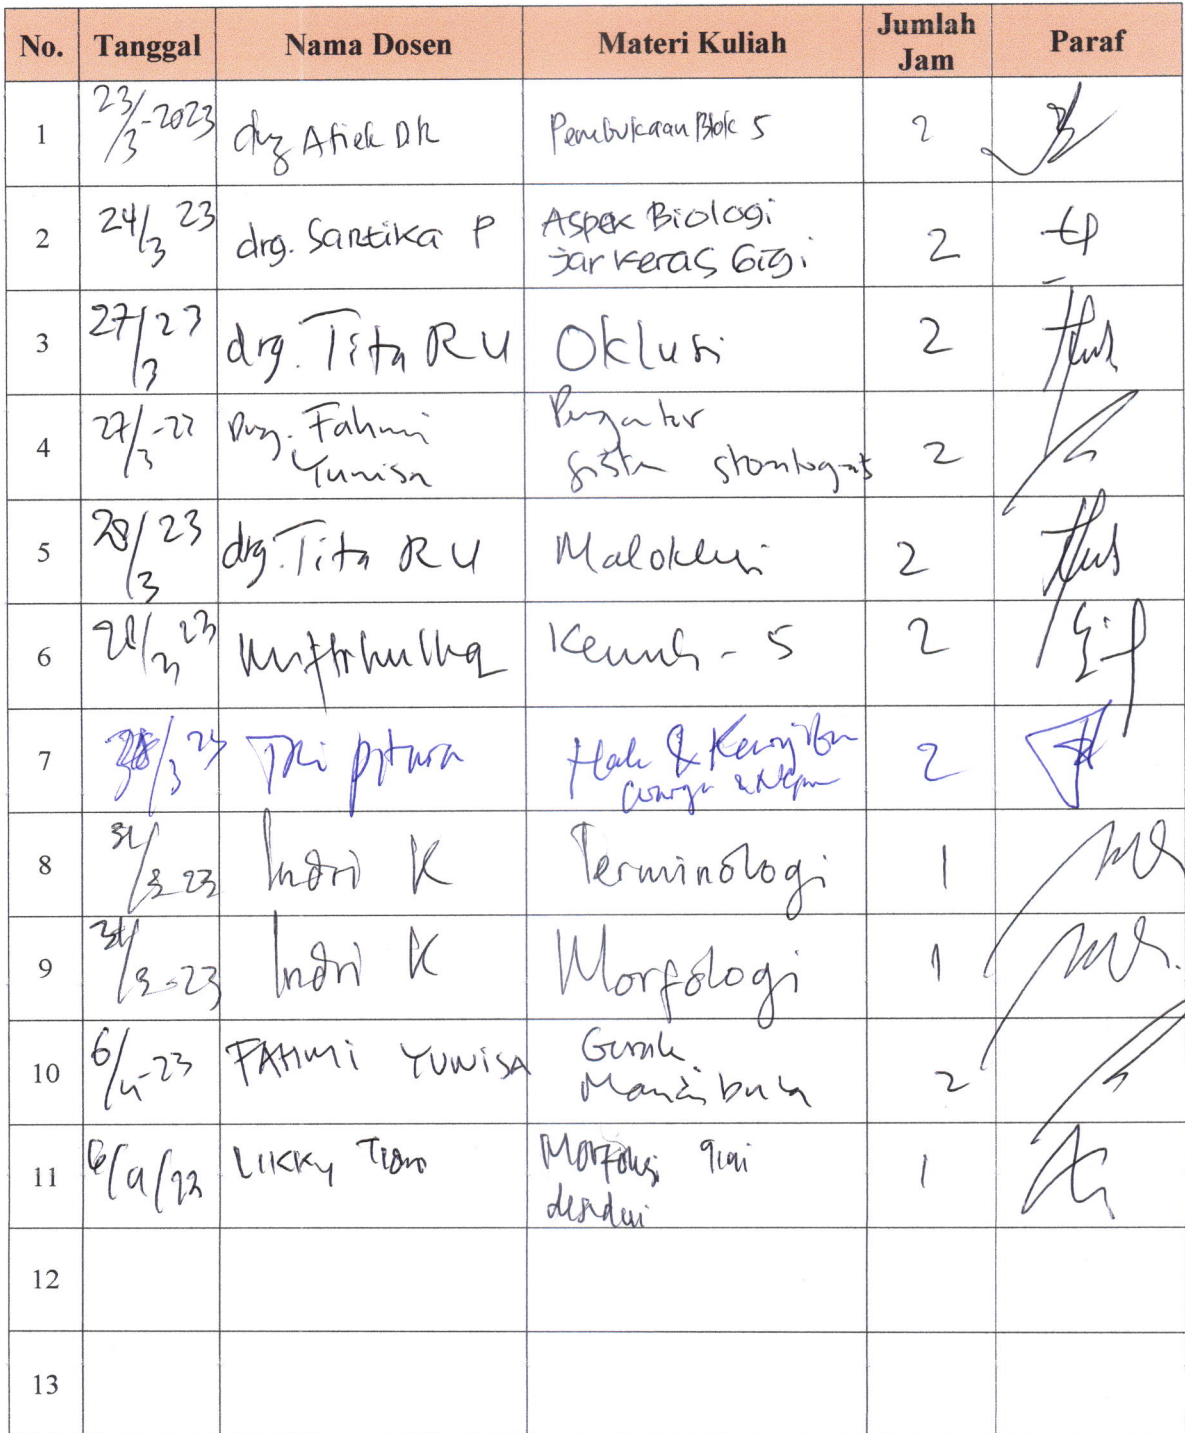 No. Tanggal Nama Dosen Materi Kuliah Jumlah Jam Paraf
1 23/3-2023 drg Atiek DR Pembukaan Blok 5 2
2 24/3 23 drg. Sartika P Aspek Biologi
jar keras Gigi 2
3 27/3 23 drg. Tita RU Oklusi 2
4 27/3 - Drg. Fahmi
Yunisa Pengantar
2
5 28/3 23 drg. Tita RU Maloklusi 2
6 23 5 2
7 Hak & Kewajiban
2
8 31/3-23 Indri K Terminologi 1
9 31/3-23 Indri K Morfologi 1
10 6/4-23 FAHMI YUNISA Gerak
Mandibula 2
11 LIKKY Morfologi gigi
desidui 1
12
13